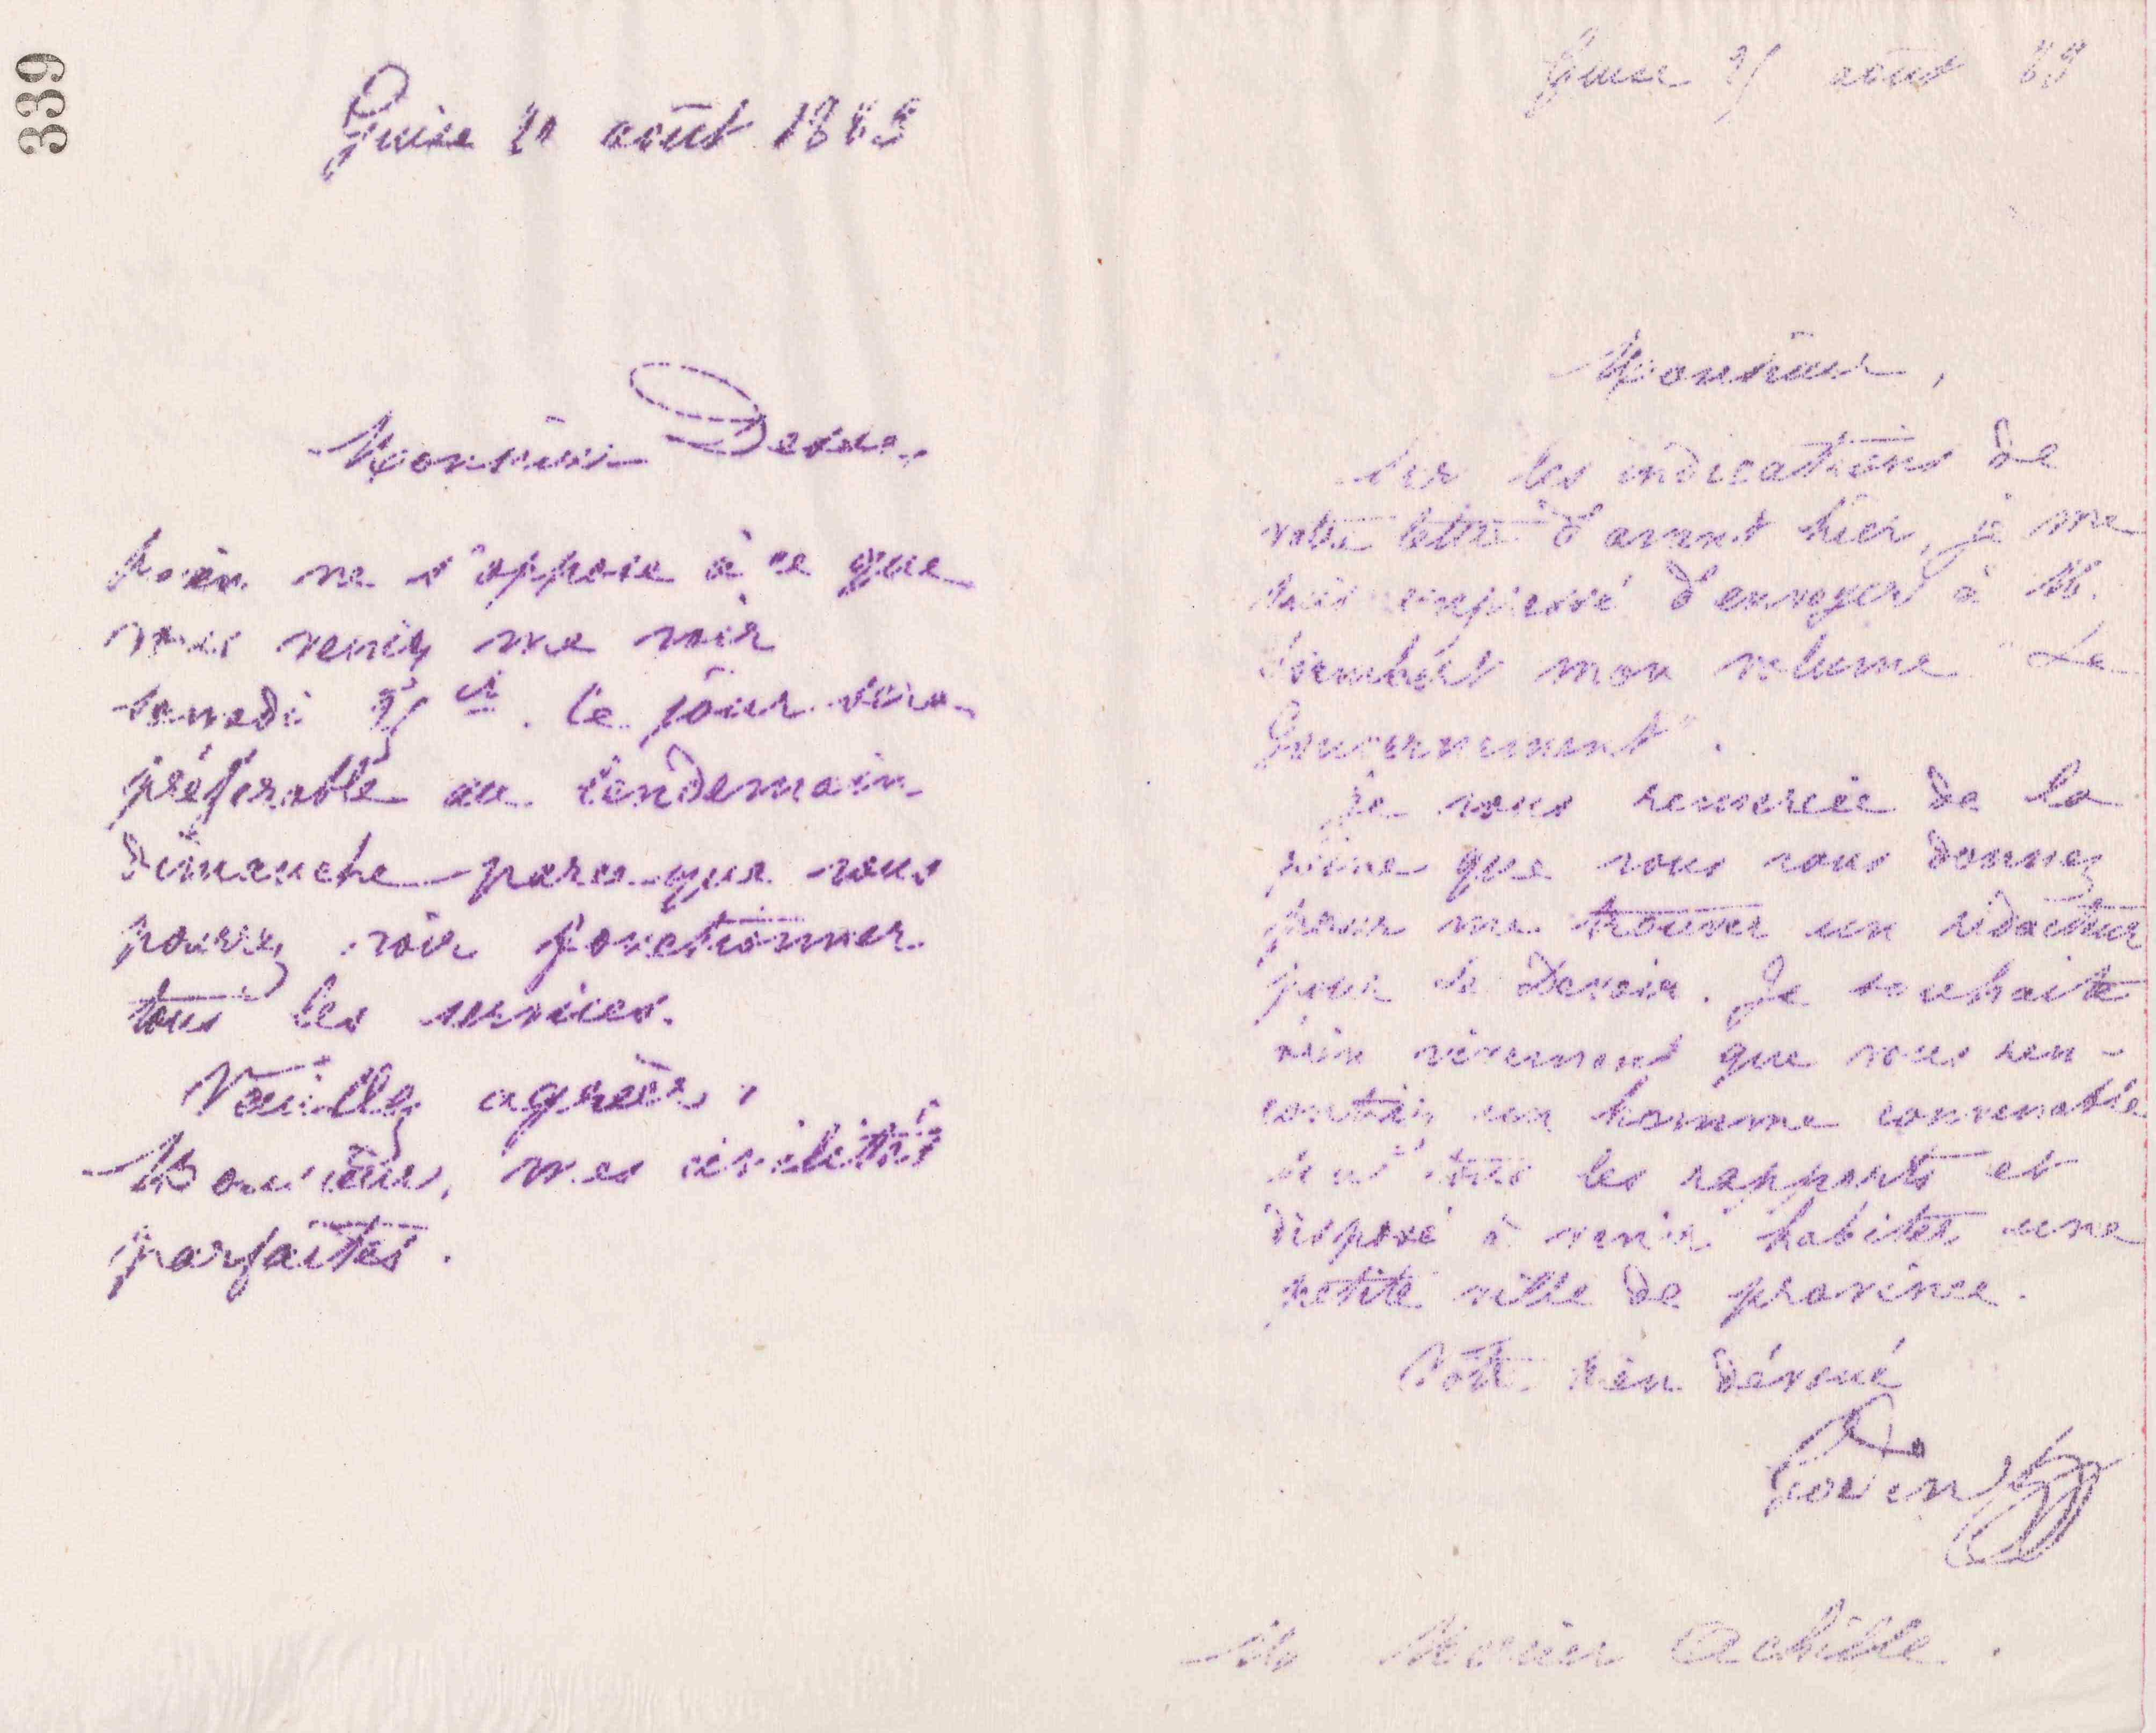 339
Guise 21 août 1883
Monsieur
Rien ne s'oppose à ce que
vous veniez me voir
samedi 25 ct. Ce jour sera
préférable au lendemain
dimanche parce que vous
pourrez voir fonctionner
tous les services.
Veuillez agréer,
Monsieur, mes civilités
parfaites.
Guise 25 août 83
Monsieur,
Sur les indications de
votre lettre d'avant hier, je me
suis empressé d'envoyer à M.
mon volume "Le
Gouvernement".
Je vous remercie de la
peine que vous vous donnez
pour me trouver un rédacteur
pour le Devoir. Je souhaite
bien vivement que vous ren-
contriez un homme convenable
sous tous les rapports et
disposé à venir habiter une
petite ville de province.
Votre bien dévoué
Godin
M Achille.